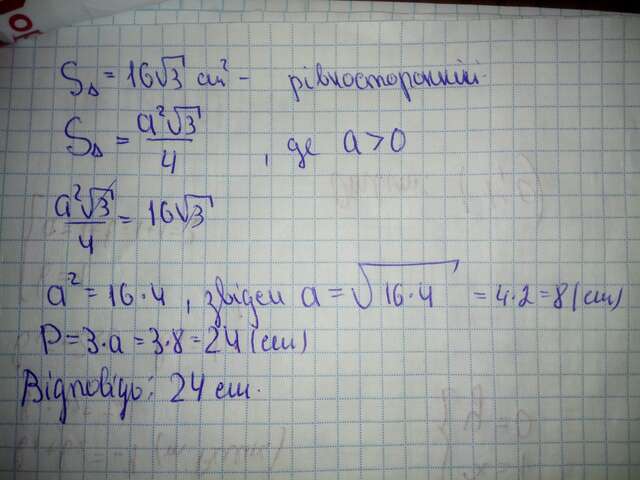 S△ = 16√3 см² - рівносторонній.
S△ = a²√3/4, де a>0
a²√3/4 = 16√3
a² = 16·4, звідси a = √16·4 = 4·2 = 8 (см)
P = 3·a = 3·8 = 24 (см)
Відповідь: 24 см.